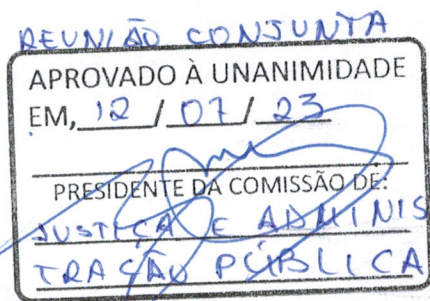 REUNIÃO CONJUNTA
APROVADO À UNANIMIDADE
EM, 12 / 07 / 23
PRESIDENTE DA COMISSÃO DE:
JUSTIÇA E ADMINIS
TRAÇÃO PÚBLICA